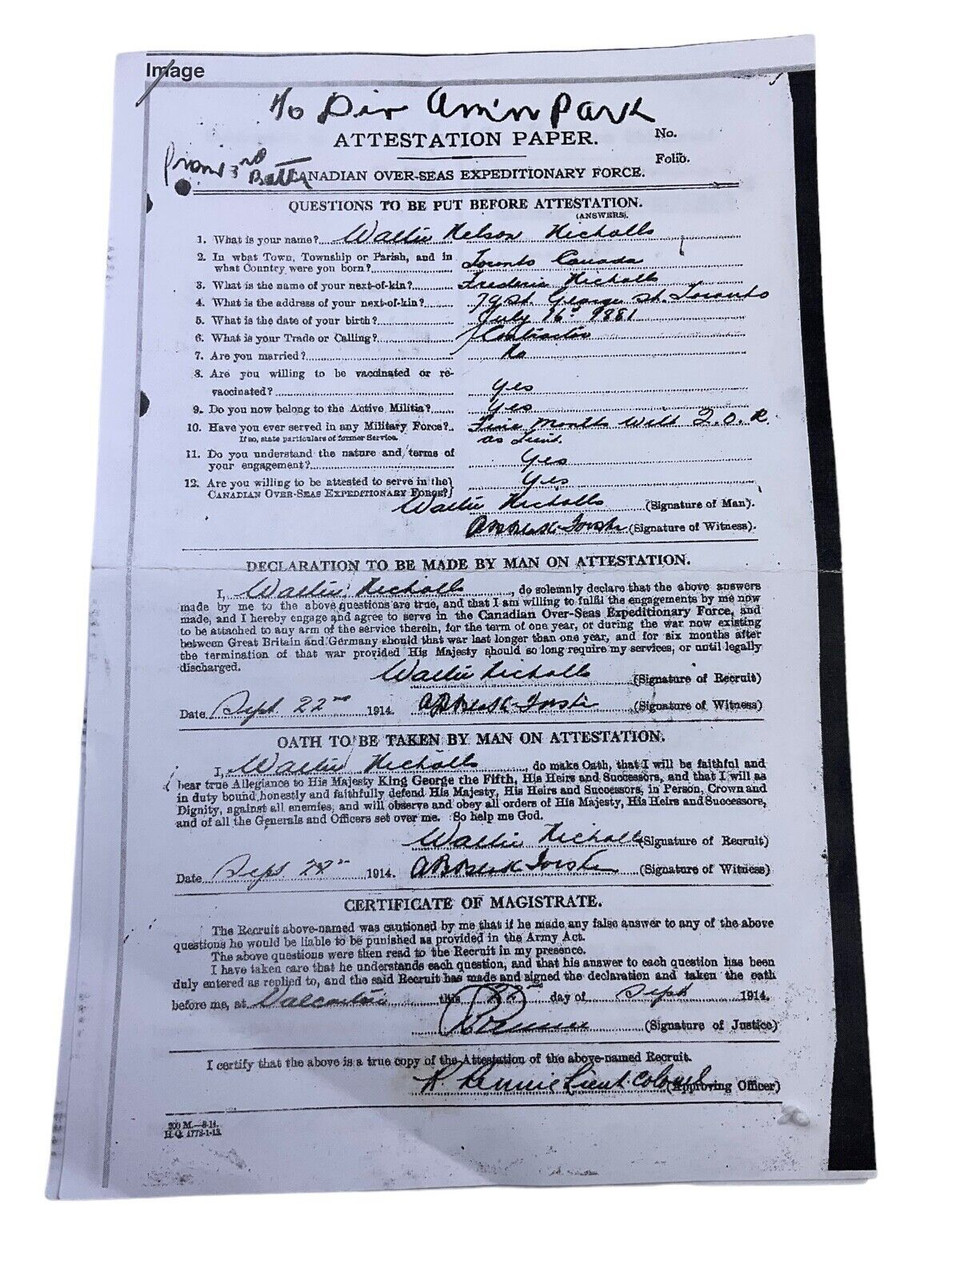 Image
To Div Am'n Park
ATTESTATION PAPER. No.
Folio.
from 3rd
Battn
CANADIAN OVER-SEAS EXPEDITIONARY FORCE.
QUESTIONS TO BE PUT BEFORE ATTESTATION.
(ANSWERS).
1. What is your name? Walter Nelson Nicholls
2. In what Town, Township or Parish, and in
what Country were you born? Toronto Canada
3. What is the name of your next-of-kin? Frederic Nicholls
4. What is the address of your next-of-kin? 79 St. George St. Toronto
5. What is the date of your birth? July 16th 1881
6. What is your Trade or Calling? Contractor
7. Are you married? No
8. Are you willing to be vaccinated or re-
vaccinated? Yes
9. Do you now belong to the Active Militia? Yes
10. Have you ever served in any Military Force? Months With Q.O.R.
If so, state particulars of former Service. as Lieut.
11. Do you understand the nature and terms of
your engagement? Yes
12. Are you willing to be attested to serve in the
CANADIAN OVER-SEAS EXPEDITIONARY FORCE? Yes
Walter Nicholls (Signature of Man).
(Signature of Witness).
DECLARATION TO BE MADE BY MAN ON ATTESTATION.
I, Walter Nicholls, do solemnly declare that the above answers
made by me to the above questions are true, and that I am willing to fulfil the engagements by me now
made, and I hereby engage and agree to serve in the Canadian Over-Seas Expeditionary Force, and
to be attached to any arm of the service therein, for the term of one year, or during the war now existing
between Great Britain and Germany should that war last longer than one year, and for six months after
the termination of that war provided His Majesty should so long require my services, or until legally
discharged.
Walter Nicholls (Signature of Recruit)
Date Sept 22nd 1914. (Signature of Witness)
OATH TO BE TAKEN BY MAN ON ATTESTATION.
I, Walter Nicholls, do make Oath, that I will be faithful and
bear true Allegiance to His Majesty King George the Fifth, His Heirs and Successors, and that I will as
in duty bound honestly and faithfully defend His Majesty, His Heirs and Successors, in Person, Crown and
Dignity, against all enemies, and will observe and obey all orders of His Majesty, His Heirs and Successors,
and of all the Generals and Officers set over me. So help me God.
Walter Nicholls (Signature of Recruit)
Date Sept 22nd 1914. (Signature of Witness)
CERTIFICATE OF MAGISTRATE.
The Recruit above-named was cautioned by me that if he made any false answer to any of the above
questions he would be liable to be punished as provided in the Army Act.
The above questions were then read to the Recruit in my presence.
I have taken care that he understands each question, and that his answer to each question has been
duly entered as replied to, and the said Recruit has made and signed the declaration and taken the oath
before me, at Valcartier this 22nd day of Sept 1914.
(Signature of Justice)
I certify that the above is a true copy of the Attestation of the above-named Recruit.
R Rennie Lieut. Colonel (Approving Officer)
200 M.—8-14.
H.Q. 1772-1-13.